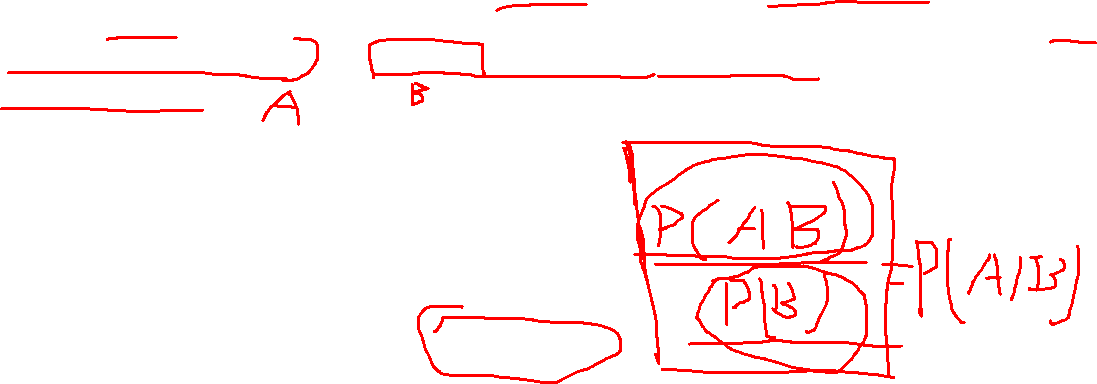 A B
P(AB)
= P(A|B)
P(B)